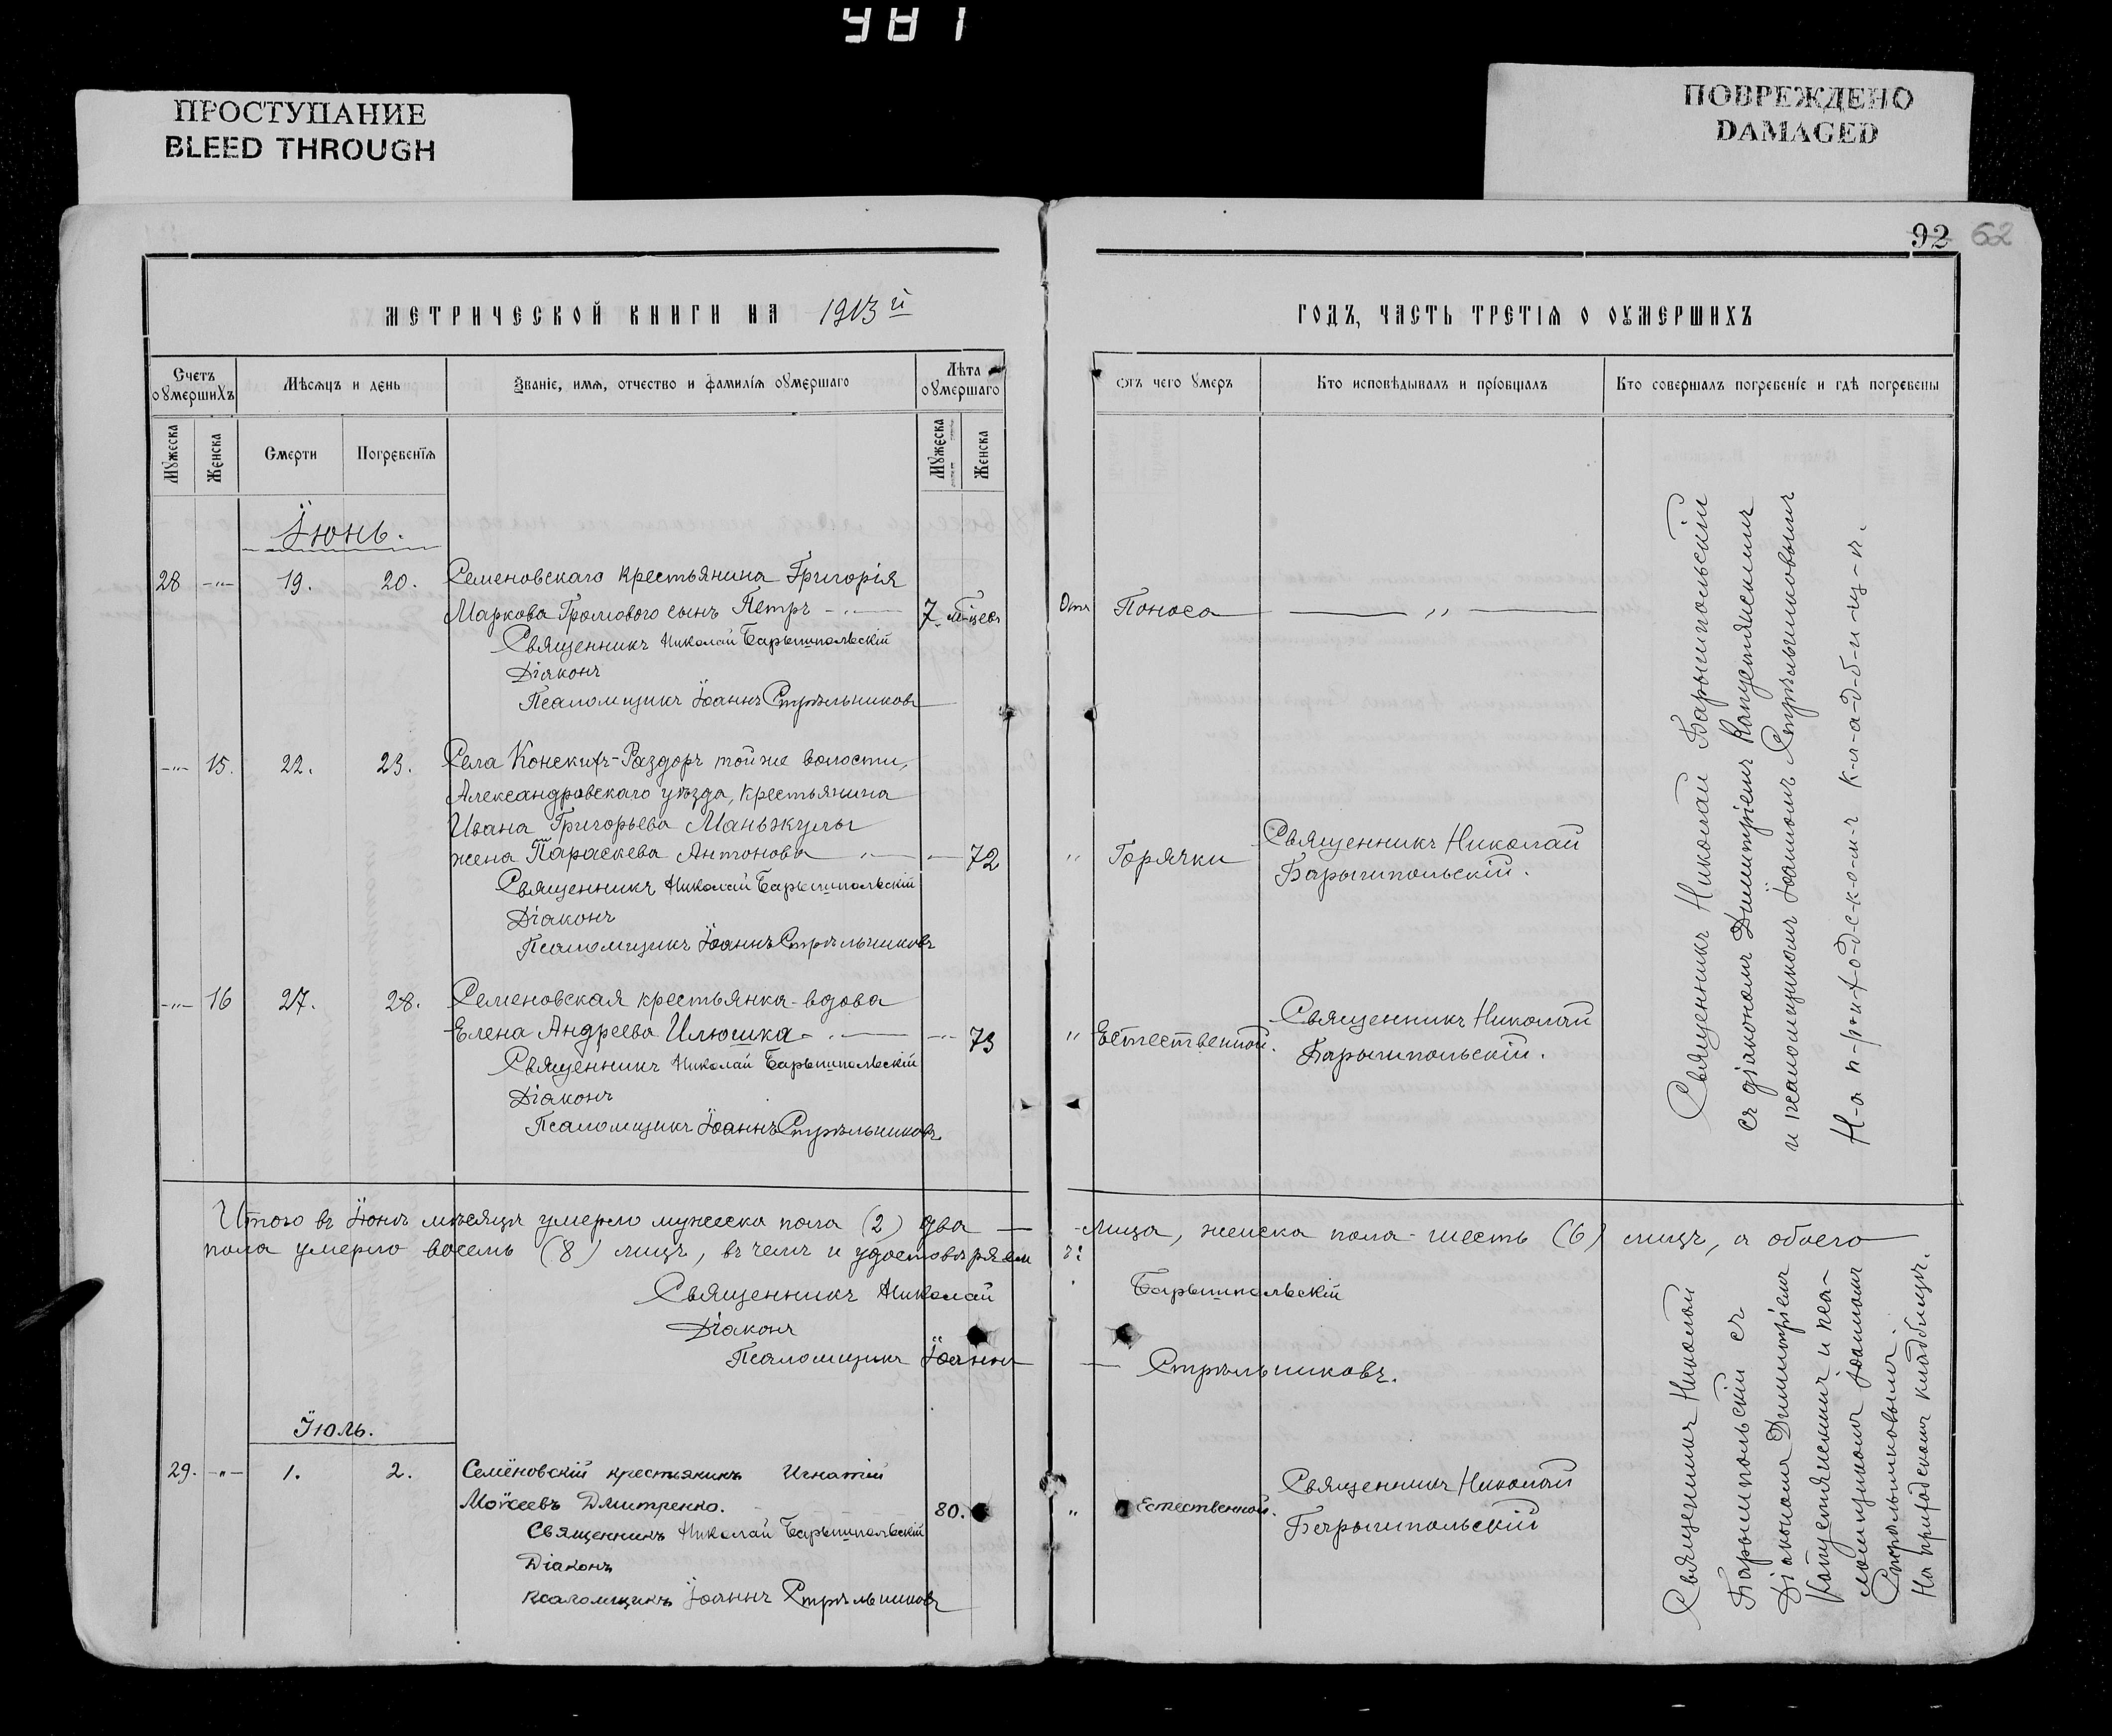 981
ПРОСТУПАНИЕ
BLEED THROUGH
ПОВРЕЖДЕНО
DAMAGED
92 62
МЕТРИЧЕСКОЙ КНИГИ НА 1913 й
Счетъ оумершихъ
Мѣсяцъ и день
Званіе, имя, отчество и фамилія оумершаго
Лѣта оумершаго
Мужеска
Женска
Смерти
Погребенія
Мужеска
Женска
Іюнь.
28 -"- 19. 20. Семеновскаго крестьянина Григорія
Маркова Громового сынъ Петръ -"- 7 м-цевъ
Священникъ Николай Барышпольскій
Діаконъ
Псаломщикъ Іоаннъ Стрѣльниковъ
-"- 15. 22. 23. Села Конскихъ-Раздоръ той же волости,
Александровскаго уѣзда, крестьянина
Ивана Григорьева Маньжулы
жена Параскева Антонова -"- - 72
Священникъ Николай Барышпольскій
Діаконъ
Псаломщикъ Іоаннъ Стрѣльниковъ
-"- 16 27. 28. Семеновская крестьянка-вдова
Елена Андреева Илюшка -"- 73
Священникъ Николай Барышпольскій
Діаконъ
Псаломщикъ Іоаннъ Стрѣльниковъ
Итого въ Іюнѣ мѣсяцѣ умерло мужеска пола (2) два —
пола умерло восемь (8) лицъ, въ чемъ и удостовѣряем
Священникъ Николай
Діаконъ
Псаломщикъ Іоаннъ
Іюль.
29. -"- 1. 2. Семёновскій крестьянинъ Игнатій
Моѵсеевъ Дмитренко. 80.
Священникъ Николай Барышпольскій
Діаконъ
Псаломщикъ Іоаннъ Стрѣльниковъ
ГОДЪ, ЧАСТЬ ТРЕТІЯ О ОУМЕРШИХЪ
Отъ чего умеръ
Кто исповѣдывалъ и пріобщалъ
Кто совершалъ погребеніе и гдѣ погребены
Отъ Поноса — " —
" Горячки
Священникъ Николай
Барышпольскій.
" Естественной.
Священникъ Николай
Барышпольскій.
Священникъ Николай Барышпольскій
съ діакономъ Димитріемъ Капустянскимъ
и псаломщикомъ Іоанномъ Стрѣльниковымъ
Н-а п-р-и-х-о-д-с-к-о-м-ъ к-л-а-д-б-и-щ-ѣ.
-лица, женска пола-шесть (6) лицъ, а обоего
ъ:
Барышпольскій
— Стрѣльниковъ.
" Естественной.
Священникъ Николай
Барышпольскій
Священникъ Николай
Барышпольскій съ
Діакономъ Димитріемъ
Капустянскимъ и пса-
ломщикомъ Іоанномъ
Стрѣльниковымъ.
На приходскомъ кладбищѣ.